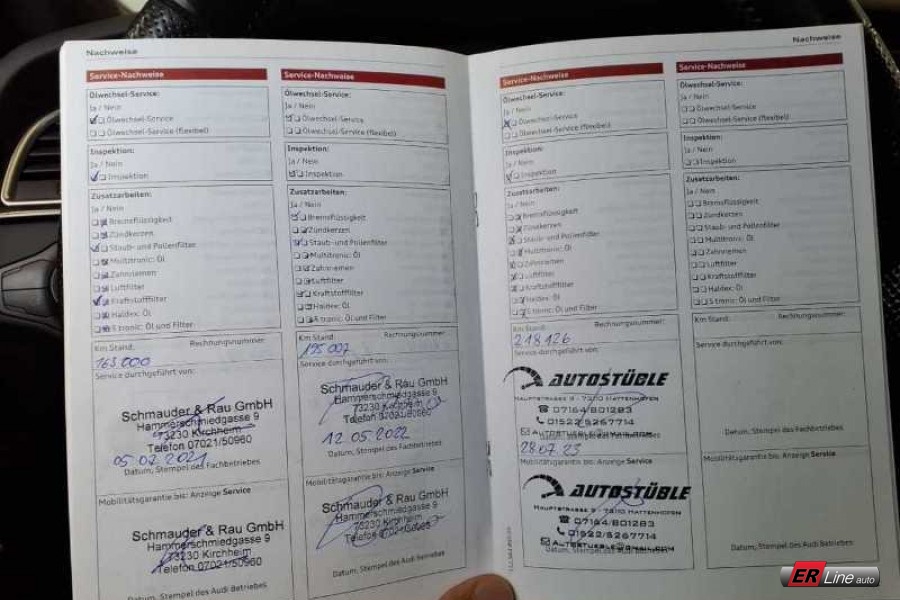 Nachweise
Service-Nachweise
Ölwechsel-Service:
Ja / Nein
Ölwechsel-Service
Ölwechsel-Service (flexibel)
Inspektion:
Ja / Nein
Inspektion
Zusatzarbeiten:
Ja / Nein
Bremsflüssigkeit
Zündkerzen
Staub- und Pollenfilter
Multitronic: Öl
Zahnriemen
Luftfilter
Kraftstofffilter
Haldex: Öl
S tronic: Öl und Filter
Km Stand: Rechnungsnummer:
163.000
Service durchgeführt von:
Schmauder & Rau GmbH
Hammerschmiedgasse 9
73230 Kirchheim
Telefon 07021/50960
05.07.2021
Datum, Stempel des Fachbetriebes
Mobilitätsgarantie bis: Anzeige Service
Schmauder & Rau GmbH
Hammerschmiedgasse 9
73230 Kirchheim
Telefon 07021/50960
Datum, Stempel des Audi Betriebes
Service-Nachweise
Ölwechsel-Service:
Ja / Nein
Ölwechsel-Service
Ölwechsel-Service (flexibel)
Inspektion:
Ja / Nein
Inspektion
Zusatzarbeiten:
Ja / Nein
Bremsflüssigkeit
Zündkerzen
Staub- und Pollenfilter
Multitronic: Öl
Zahnriemen
Luftfilter
Kraftstofffilter
Haldex: Öl
S tronic: Öl und Filter
Km Stand: Rechnungsnummer:
195 007
Service durchgeführt von:
Schmauder & Rau GmbH
Hammerschmiedgasse 9
73230 Kirchheim
Telefon 07021/50960
12.05.2022
Datum, Stempel des Fachbetriebes
Mobilitätsgarantie bis: Anzeige Service
Schmauder & Rau GmbH
Hammerschmiedgasse 9
73230 Kirchheim
Telefon 07021/50960
Datum, Stempel des Audi Betriebes
Nachweise
Service-Nachweise
Ölwechsel-Service:
Ja / Nein
Ölwechsel-Service
Ölwechsel-Service (flexibel)
Inspektion:
Ja / Nein
Inspektion
Zusatzarbeiten:
Ja / Nein
Bremsflüssigkeit
Zündkerzen
Staub- und Pollenfilter
Multitronic: Öl
Zahnriemen
Luftfilter
Kraftstofffilter
Haldex: Öl
S tronic: Öl und Filter
Km Stand: Rechnungsnummer:
218 126
Service durchgeführt von:
AUTOSTÜBLE
Hauptstraße 9 - 73110 Hattenhofen
07164/801283
01522/5267714
Autostueble@gmail.com
28.07.23
Datum, Stempel des Fachbetriebes
Mobilitätsgarantie bis: Anzeige Service
AUTOSTÜBLE
Hauptstraße 9 - 73110 Hattenhofen
07164/801283
01522/5267714
Autostueble@gmail.com
Datum, Stempel des Audi Betriebes
Service-Nachweise
Ölwechsel-Service:
Ja / Nein
Ölwechsel-Service
Ölwechsel-Service (flexibel)
Inspektion:
Ja / Nein
Inspektion
Zusatzarbeiten:
Ja / Nein
Bremsflüssigkeit
Zündkerzen
Staub- und Pollenfilter
Multitronic: Öl
Zahnriemen
Luftfilter
Kraftstofffilter
Haldex: Öl
S tronic: Öl und Filter
Km Stand: Rechnungsnummer:
Service durchgeführt von:
Datum, Stempel des Fachbetriebes
Mobilitätsgarantie bis: Anzeige Service
Datum, Stempel des Audi Betriebes
ER Line auto